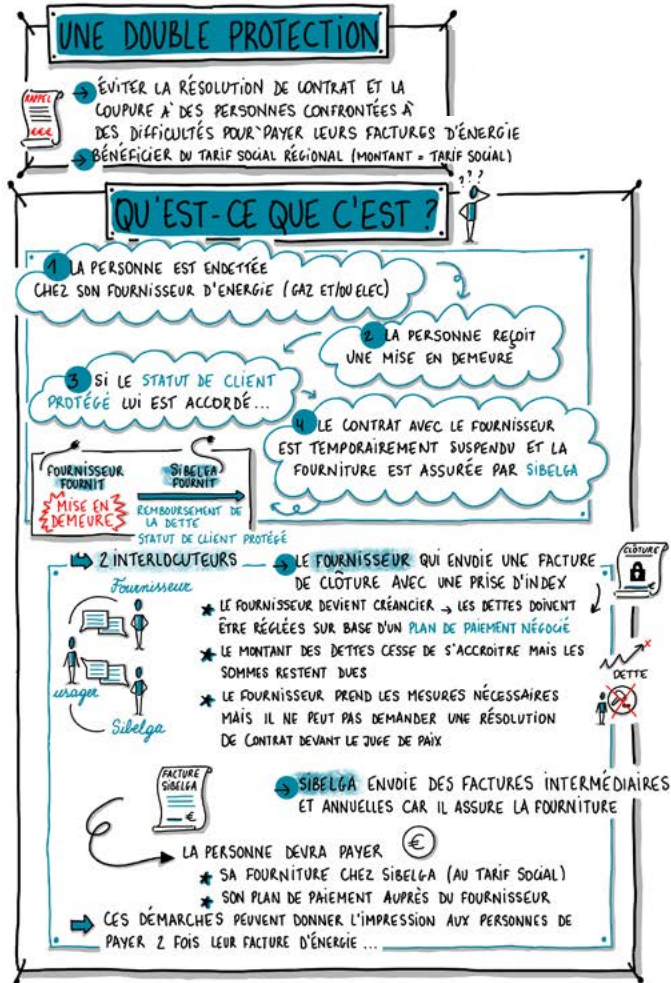 UNE DOUBLE PROTECTION
RAPPEL
€€€
→ ÉVITER LA RÉSOLUTION DE CONTRAT ET LA
COUPURE À DES PERSONNES CONFRONTÉES À
DES DIFFICULTÉS POUR PAYER LEURS FACTURES D'ÉNERGIE
→ BÉNÉFICIER DU TARIF SOCIAL RÉGIONAL (MONTANT = TARIF SOCIAL)
QU'EST-CE QUE C'EST ?
???
1 LA PERSONNE EST ENDETTÉE
CHEZ SON FOURNISSEUR D'ENERGIE (GAZ ET/OU ELEC)
2 LA PERSONNE REÇOIT
UNE MISE EN DEMEURE
3 SI LE STATUT DE CLIENT
PROTÉGÉ LUI EST ACCORDÉ...
4 LE CONTRAT AVEC LE FOURNISSEUR
EST TEMPORAIREMENT SUSPENDU ET LA
FOURNITURE EST ASSURÉE PAR SIBELGA
FOURNISSEUR
FOURNIT
SIBELGA
FOURNIT
MISE EN
DEMEURE
REMBOURSEMENT DE
LA DETTE
STATUT DE CLIENT PROTÉGÉ
2 INTERLOCUTEURS
Fournisseur
usager
Sibelga
→ LE FOURNISSEUR QUI ENVOIE UNE FACTURE
DE CLÔTURE AVEC UNE PRISE D'INDEX
CLÔTURE
★ LE FOURNISSEUR DEVIENT CRÉANCIER → LES DETTES DOIVENT
ÊTRE RÉGLÉES SUR BASE D'UN PLAN DE PAIEMENT NÉGOCIÉ
★ LE MONTANT DES DETTES CESSE DE S'ACCROITRE MAIS LES
SOMMES RESTENT DUES
DETTE
★ LE FOURNISSEUR PREND LES MESURES NÉCESSAIRES
MAIS IL NE PEUT PAS DEMANDER UNE RÉSOLUTION
DE CONTRAT DEVANT LE JUGE DE PAIX
FACTURE
SIBELGA
€
→ SIBELGA ENVOIE DES FACTURES INTERMÉDIAIRES
ET ANNUELLES CAR IL ASSURE LA FOURNITURE
LA PERSONNE DEVRA PAYER €
★ SA FOURNITURE CHEZ SIBELGA (AU TARIF SOCIAL)
★ SON PLAN DE PAIEMENT AUPRÈS DU FOURNISSEUR
CES DÉMARCHES PEUVENT DONNER L'IMPRESSION AUX PERSONNES DE
PAYER 2 FOIS LEUR FACTURE D'ÉNERGIE...